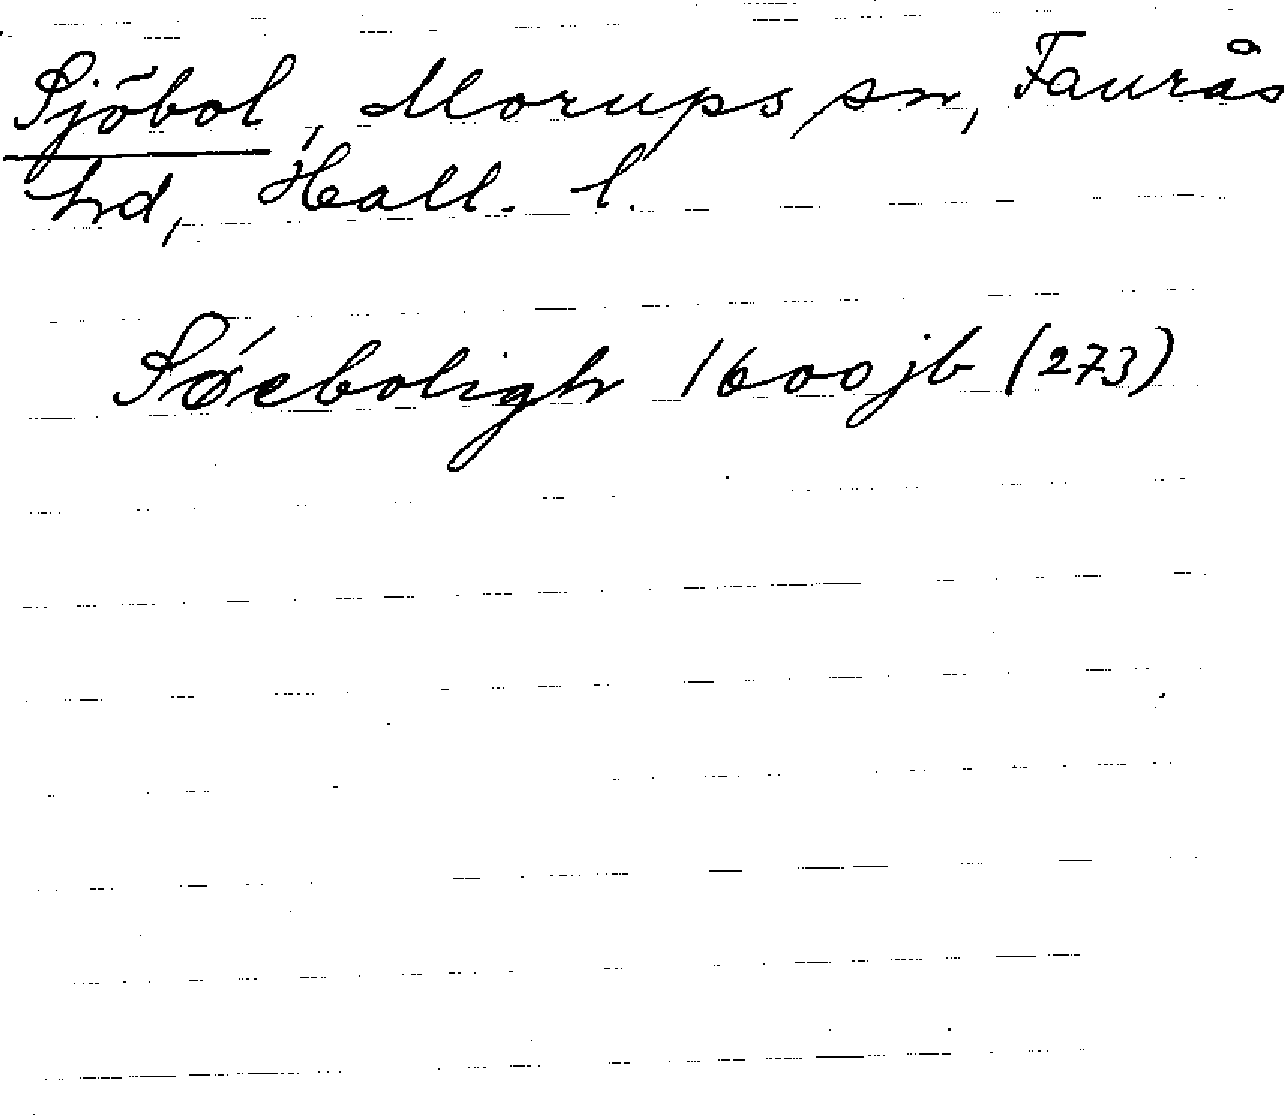 Sjöbol, Morups sn, Faurås
hd, Hall. l.
Søeboligh 1600 jb (273)